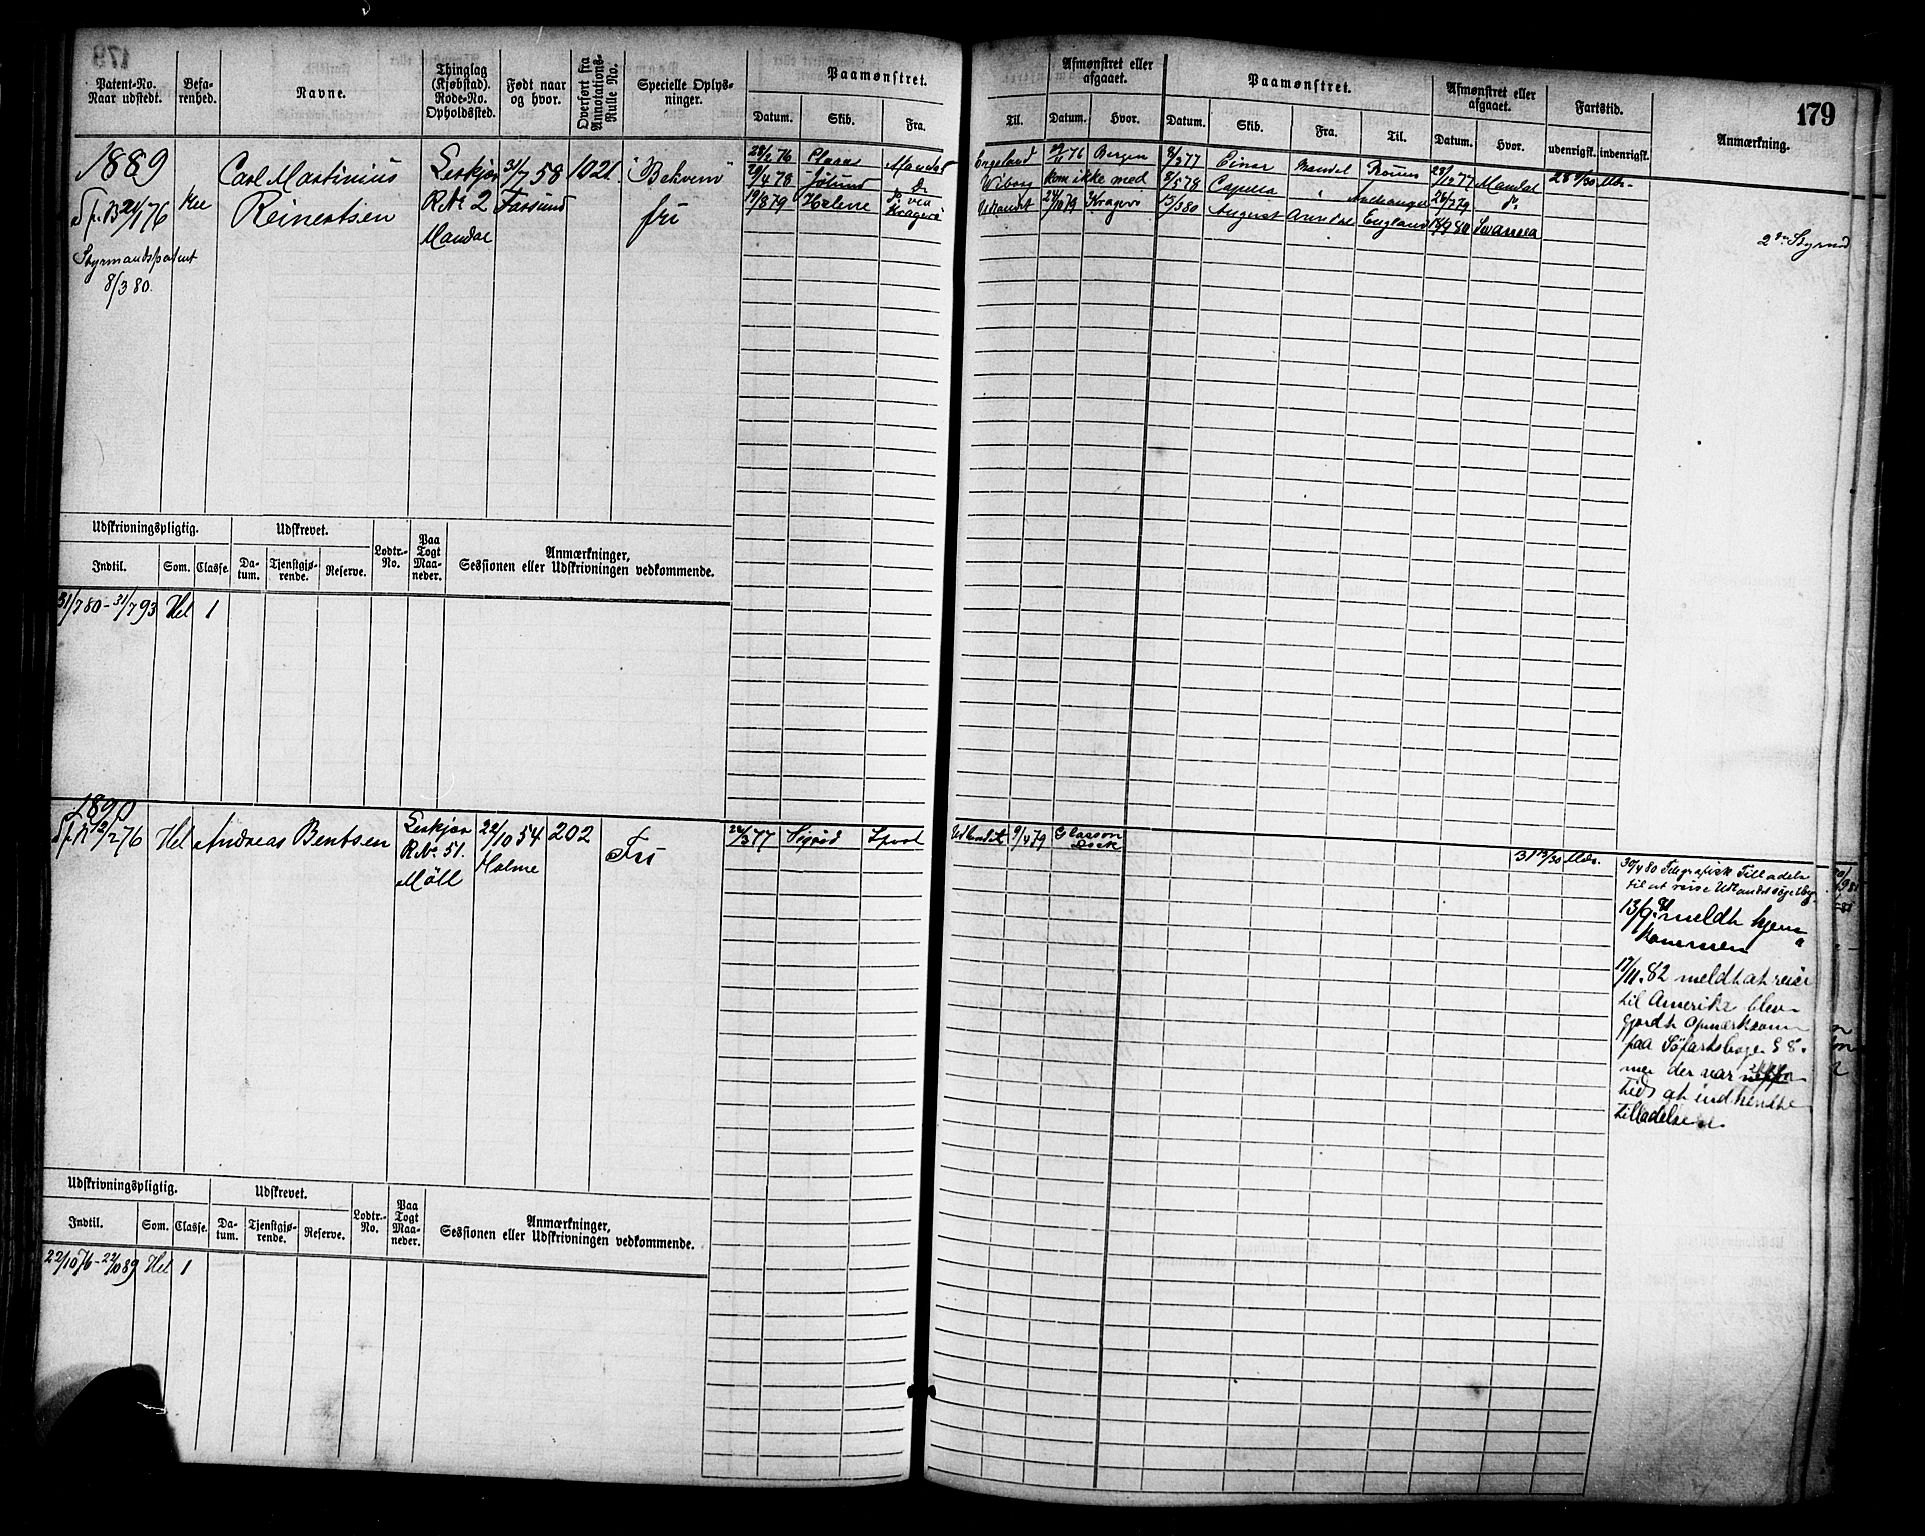 179
Patent-No. Naar udstedt.
Befa-renhed.
Navne.
Thinglag (Kjøbstad). Rode-No. Opholdssted.
Født naar og hvor.
Overført fra Annotations-Rulle No.
Specielle Oplys-ninger.
Paamønstret.
Datum. Skib. Fra.
Til.
Afmønstret eller afgaaet.
Datum. Hvor.
Paamønstret.
Datum. Skib. Fra. Til.
Afmønstret eller afgaaet.
Datum. Hvor.
Fartstid.
udenrigsk. indenrigsk.
Anmærkning.
1889
Carl Martinius
Reinertsen
R No 2
Mandal
31/7 58
Farsund
1021
"Bekvem"
fri
Styrmandspatent
8/3 80.
28/2 76 Clara Mandal England 29/11 76 Bergen 8/2 77 Einar Mandal 28/12 77 Mandal 28 9/30 Mdr.
29/4 78 Do Wiborg kom ikke med 8/5 78 Capella " 26/7 79 Do
19/8 79 Helene Do via Kragerø Udlandet 24/10 79 Kragerø 15/3 80 August Arendal England 14/9 80 Swansea
2den Styrmd
Udskrivningspligtig. Udskrevet. Lodtr.-No. Paa Togt Maa-neder. Anmærkninger,
Sessionen eller Udskrivningen vedkommende.
Indtil. Som. Classe. Da-tum. Tjenstgjø-rende. Reserve.
31/7 80 - 31/7 93 Hel 1
1890
12/2 76
Hel
Andreas Bentsen
R No 51.
Möll
22/10 54
Holme
202
Fri
Sigrid
Udlandet 9/4 79 Glasson Dock
31 13/30 Mdr.
30/4 80 Telegrafisk Tilladelse
til at reise Udlandet
13/9 81 meldt hjem
kommen
17/11. 82 meldt at reise
til Amerika blev
gjordt opmærksom
paa Søfartslogen § 8.
men der var ikke
tids at indhendte
tilladelsen
Udskrivningspligtig. Udskrevet. Lodtr.-No. Paa Togt Maa-neder. Anmærkninger,
Sessionen eller Udskrivningen vedkommende.
Indtil. Som. Classe. Da-tum. Tjenstgjø-rende. Reserve.
22/10 76 - 22/10 89 Hel 1